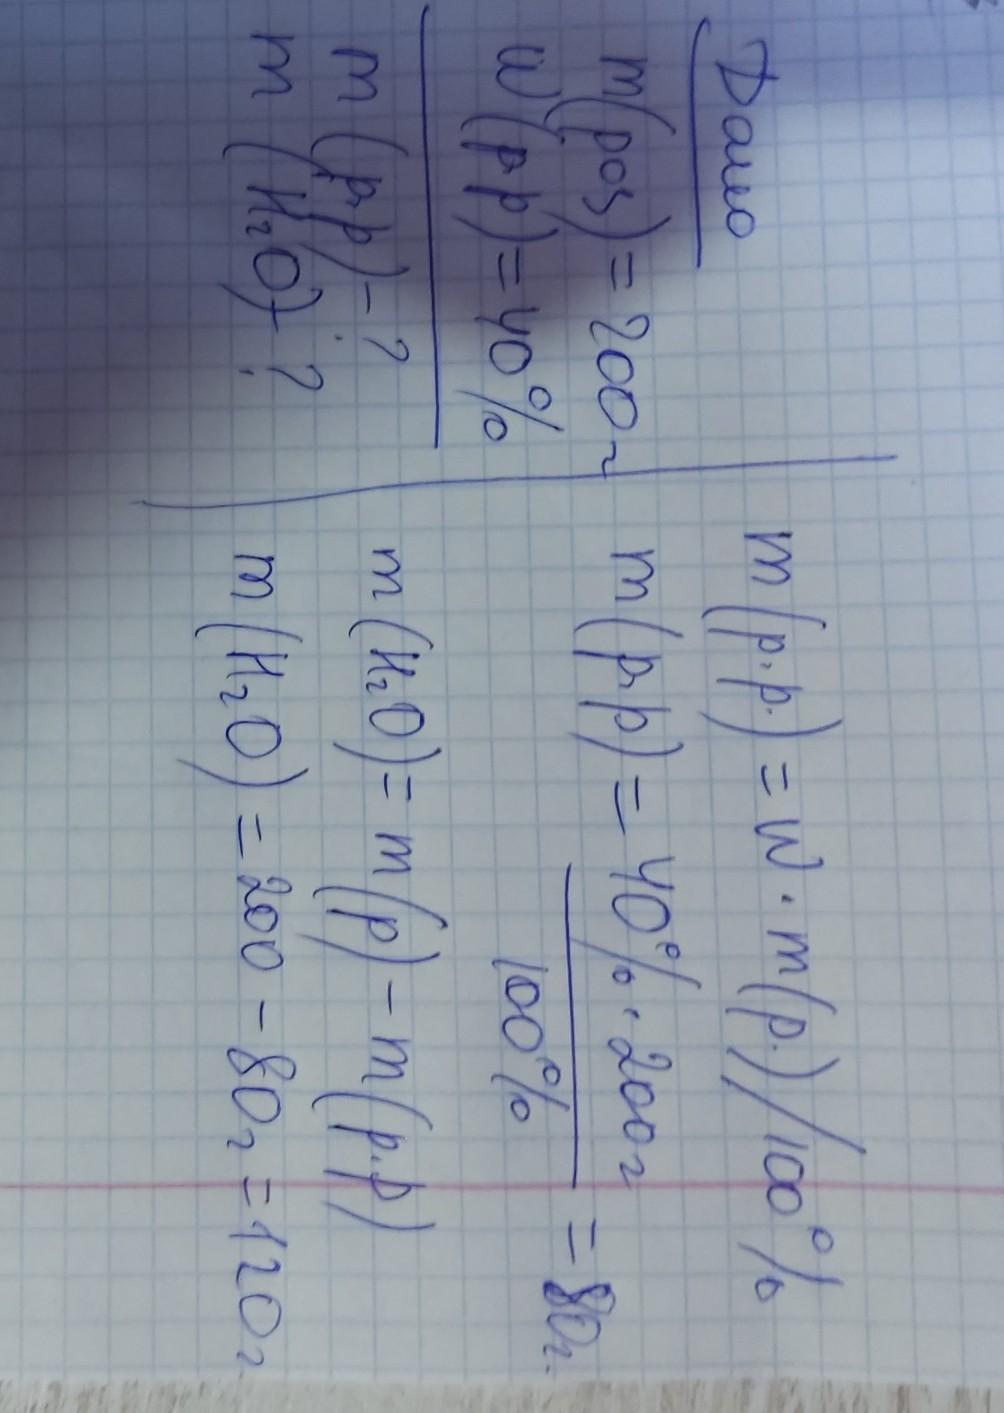 Дано
m(роз) = 200 г
W(р.р) = 40%
m(р.р) - ?
m(H₂O) - ?
m(р.р.) = W · m(р.)/100%
m(р.р) = 40% · 200 г / 100% = 80 г.
m(H₂O) = m(р) - m(р.р)
m(H₂O) = 200 - 80 г = 120 г